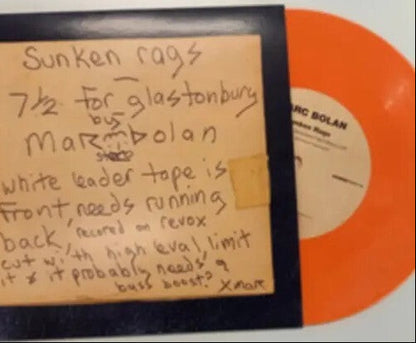 Sunken rags
7½ for glastonbury
by
Marc bolan
white leader tape is
front, needs running
back, record on revox
cut with high level limit
it & it probably needs a
bass boost? X marc
MARC BOLAN
Sunken Rags